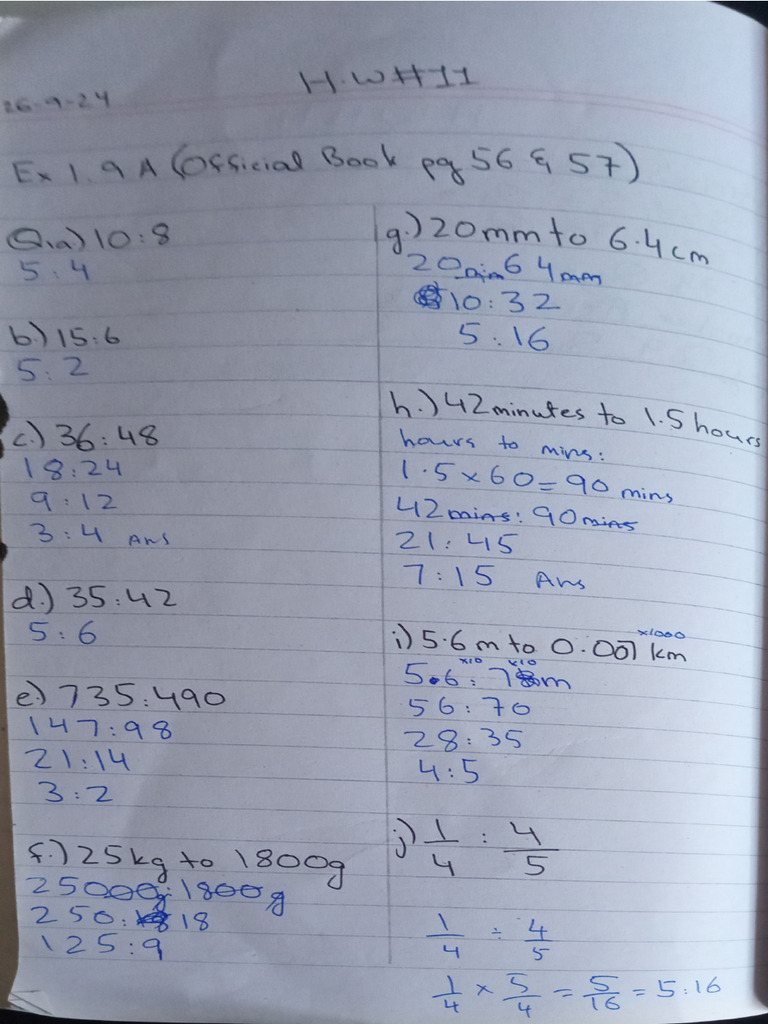 H.W#11
26-9-24
Ex 1.9 A (Official Book pg 56 & 57)
Q.a) 10:8
5:4
b.) 15:6
5:2
c.) 36:48
18:24
9:12
3:4 Ans
d.) 35:42
5:6
e.) 735:490
147:98
21:14
3:2
f.) 25kg to 1800g
25000g:1800g
250:18
125:9
g.) 20mm to 6.4cm
20mm 64mm
10:32
5:16
h.) 42 minutes to 1.5 hours
hours to mins:
1.5×60=90 mins
42mins:90mins
21:45
7:15 Ans
×1000
i) 5.6m to 0.007 km
×10 ×10
5.6:7m
56:70
28:35
4:5
j) 1/4 : 4/5
1/4 ÷ 4/5
1/4 × 5/4 = 5/16 = 5:16